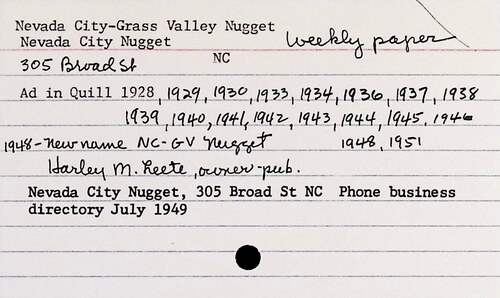 Nevada City-Grass Valley Nugget
Nevada City Nugget
Weekly paper
305 Broad St
NC
Ad in Quill 1928, 1929, 1930, 1933, 1934, 1936, 1937, 1938
1939, 1940, 1941, 1942, 1943, 1944, 1945, 1946
1948-New name NC-GV Nugget 1948, 1951
Harley M. Leete, owner-pub.
Nevada City Nugget, 305 Broad St NC Phone business
directory July 1949